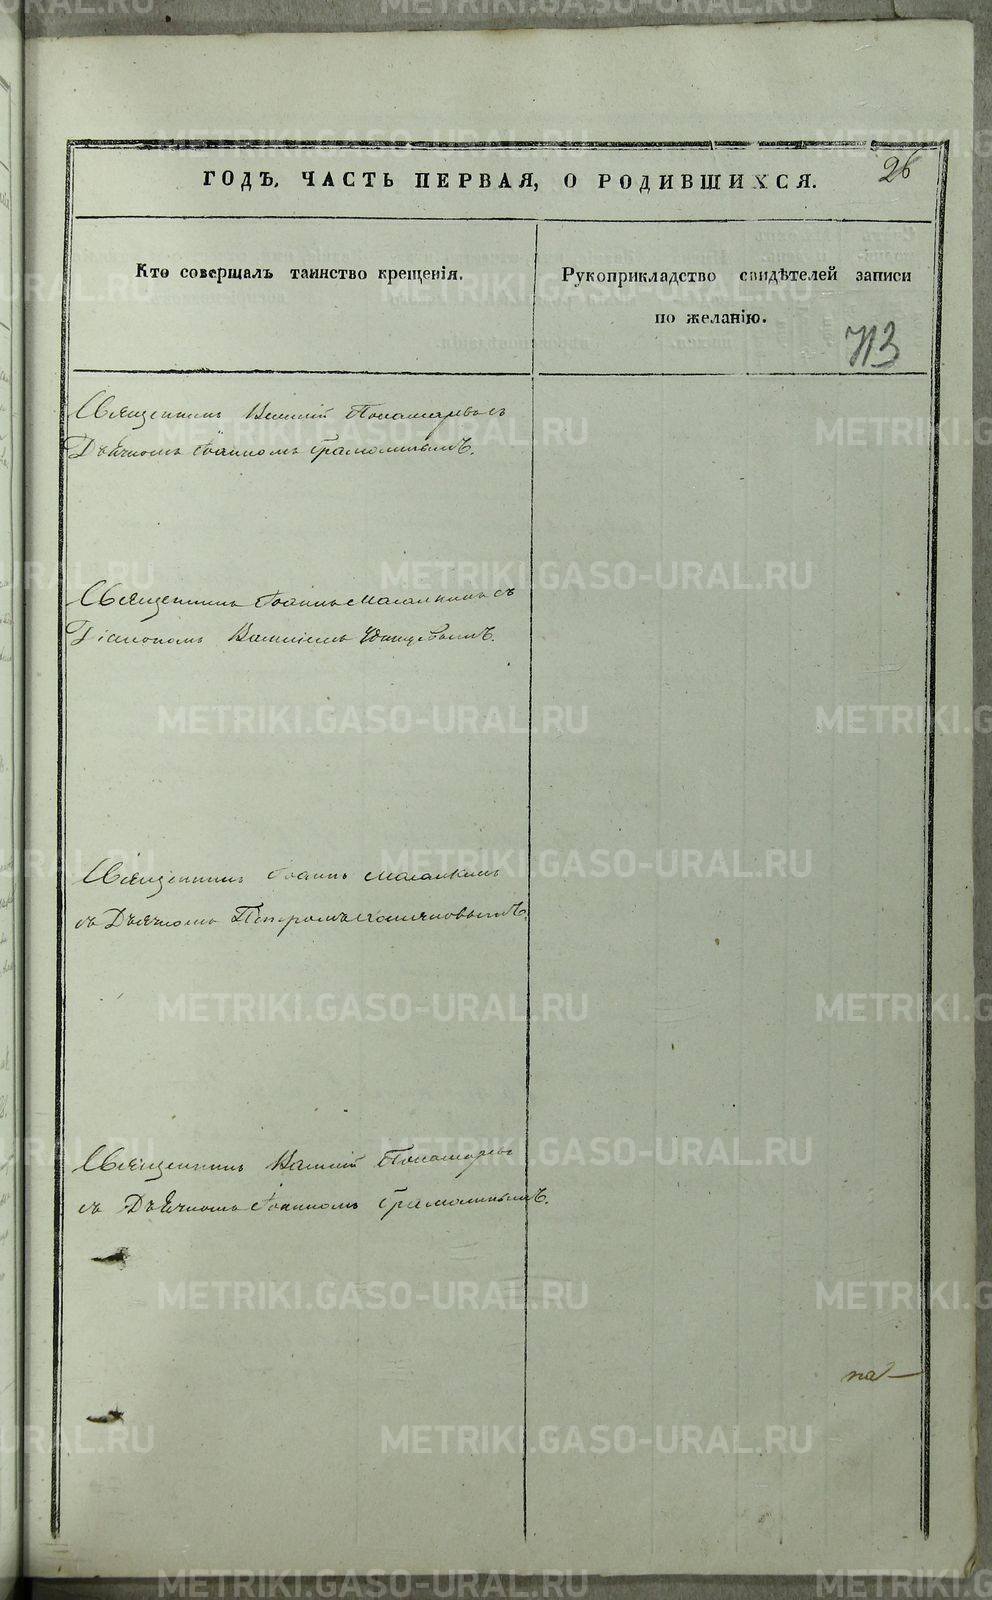 26
ГОДЪ, ЧАСТЬ ПЕРВАЯ, О РОДИВШИХСЯ.
Кто совершалъ таинство крещенія.
Рукоприкладство свидѣтелей записи
по желанію.
713
Священникъ Василій Пономаревъ съ
Дьячкомъ Іоанномъ Грамолинымъ.
Священникъ Іоаннъ съ
Діакономъ Василіемъ
Священникъ Іоаннъ
съ Дьячкомъ Петромъ
Священникъ Василій Пономаревъ
съ Дьячкомъ Іоанномъ Грамолинымъ.
на
METRIKI.GASO-URAL.RU